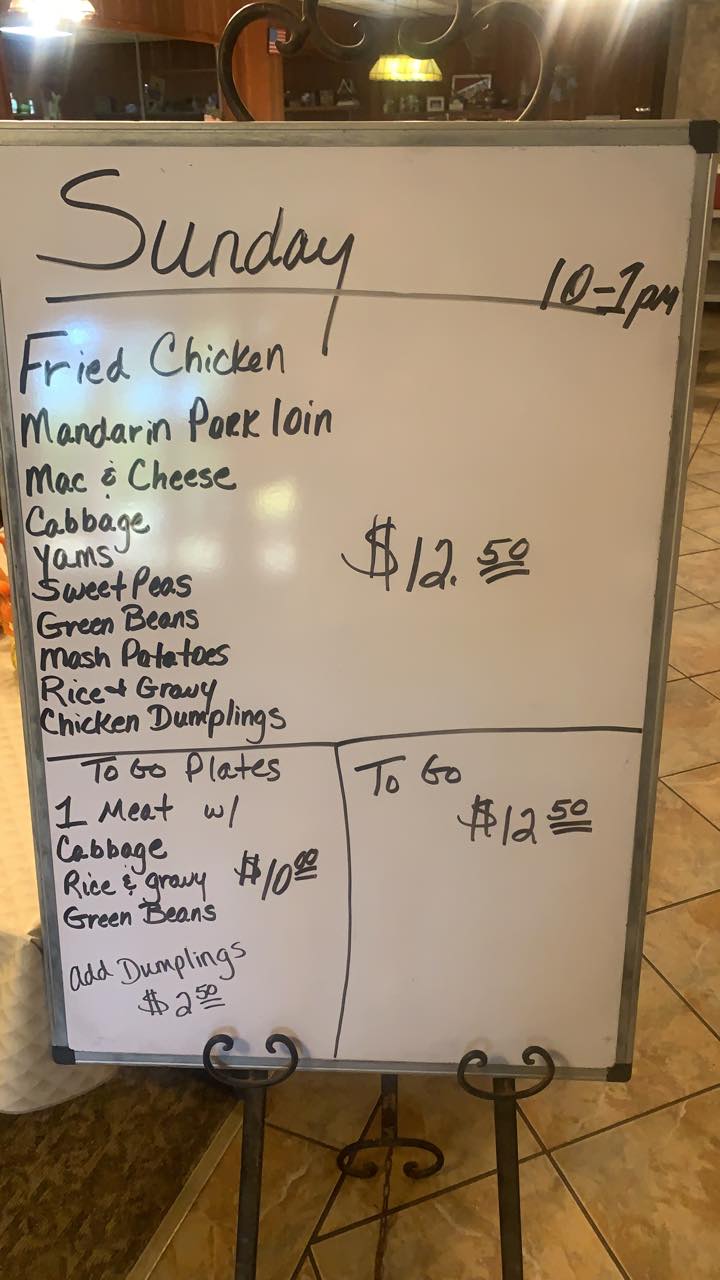 Sunday
10-1pm
Fried Chicken
Mandarin Pork loin
Mac & Cheese
Cabbage
Yams
Sweet Peas
Green Beans
Mash Potatoes
Rice & Gravy
Chicken Dumplings
$12.50
To Go Plates
1 Meat w/
Cabbage
Rice & gravy $10.00
Green Beans
add Dumplings
$2.50
To Go
$12.50